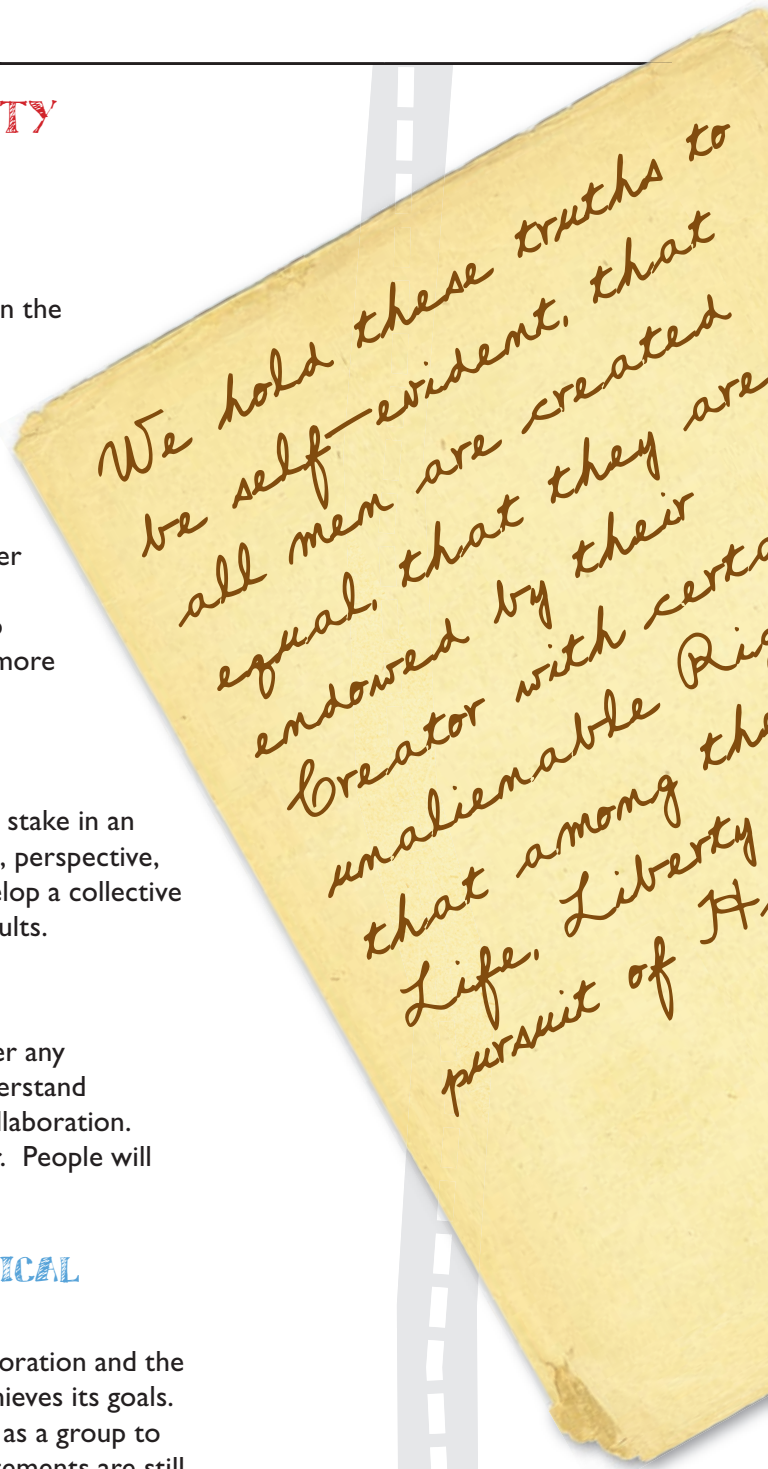 TY
n the
er
more
stake in an
, perspective,
elop a collective
ults.
er any
erstand
llaboration.
r. People will
ICAL
oration and the
hieves its goals.
as a group to
ements are still
We hold these truths to
be self-evident, that
all men are created
equal, that they are
endowed by their
Creator with certa
unalienable Rig
that among the
Life, Liberty
pursuit of H